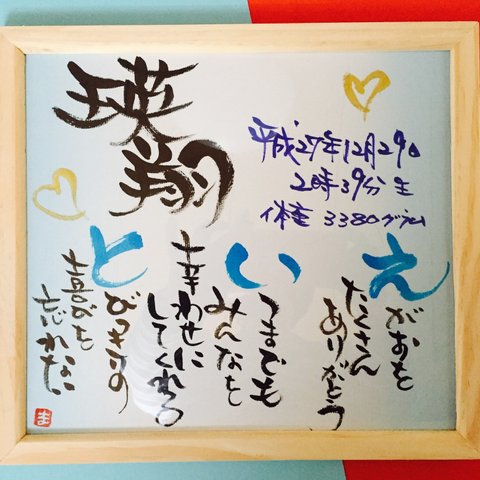 瑛翔
平成27年12月29日
2時39分生
体重 3380グラム
えがおを
たくさん
ありがとう
いつまでも
みんなを
幸わせに
してくれる
とびっきりの
喜びを
忘れない
ま